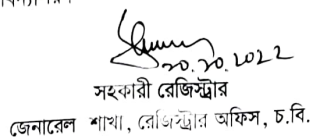 ২০.১০.২০২২
সহকারী রেজিস্ট্রার
জেনারেল শাখা, রেজিস্ট্রার অফিস, চ.বি.